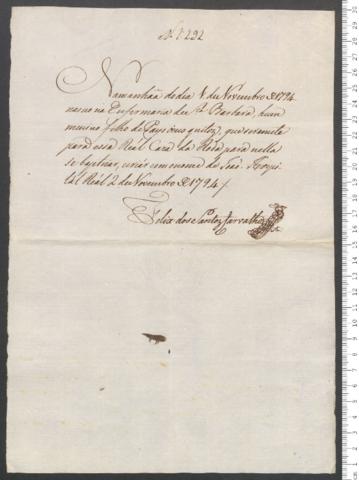 N.º 1292
Na manhãa do dia 1 de Novembro de 1794
nasceo na Enfermaria de S.ta Barbara, hum
menino filho de Pays incognitos, que se remete
para essa Real Caza da Roda para nella
se baptizar, e criar com o nome de José. Hospi
tal Real 2 de Novembro de 1794
Felix dos Santos Carvalho